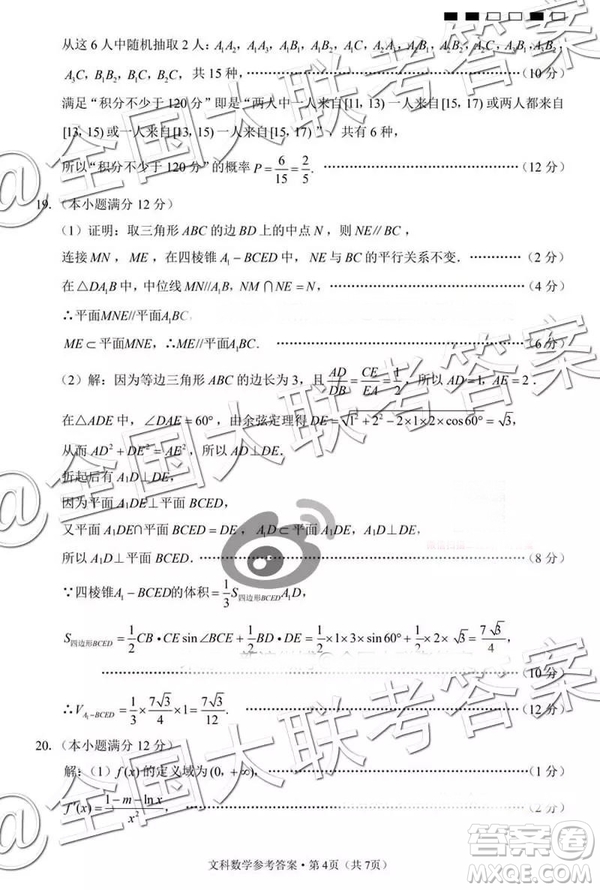 从这 6 人中随机抽取 2 人：A₁A₂，A₁A₃，A₁B₁，A₁B₂，A₁C，A₂A₃，A₂B₁，A₂B₂，A₂C，A₃B₁，A₃B₂，
A₃C，B₁B₂，B₁C，B₂C，共 15 种，…………（10 分）
满足“积分不少于 120 分”即是“两人中一人来自[11，13)一人来自[15，17)或两人都来自
[13，15)或一人来自[13，15)一人来自[15，17)”，共有 6 种，
所以“积分不少于 120 分”的概率 P = 6/15 = 2/5. …………（12 分）
19.（本小题满分 12 分）
（1）证明：取三角形 ABC 的边 BD 上的中点 N，则 NE // BC，
连接 MN，ME，在四棱锥 A₁－BCED 中，NE 与 BC 的平行关系不变. …………（2 分）
在△DA₁B 中，中位线 MN//A₁B, NM∩NE=N， …………（4 分）
∴平面MNE//平面A₁BC,
ME⊂平面MNE，∴ME//平面A₁BC. …………（6 分）
（2）解：因为等边三角形 ABC 的边长为 3，且 AD/DB = CE/EA = 1/2，所以 AD=1，AE=2．
在△ADE 中，∠DAE=60°，由余弦定理得 DE=√(1²+2²－2×1×2×cos60°)=√3，
从而 AD²+DE²=AE²，所以 AD⊥DE.
折起后有 A₁D⊥DE，
因为平面 A₁DE⊥平面 BCED，
又平面 A₁DE∩平面 BCED=DE，A₁D⊂平面 A₁DE，A₁D⊥DE，
所以 A₁D⊥平面 BCED， …………（8 分）
∵四棱锥A₁－BCED的体积=1/3 S四边形BCED A₁D,
S四边形BCED = 1/2 CB·CE sin∠BCE + 1/2 BD·DE = 1/2×1×3×sin60°+1/2×2×√3 = 7√3/4，
…………（10 分）
∴V A₁－BCED = 1/3×7√3/4×1 = 7√3/12. …………（12 分）
20.（本小题满分 12 分）
解：（1）f(x) 的定义域为 (0，+∞)， …………（1 分）
f′(x) = (1－m－ln x)/x²，
文科数学参考答案·第 4页（共 7页）
@全国大联考答案
@全国大联考答案
@全国大联考答案
答案卷
MXQE.COM